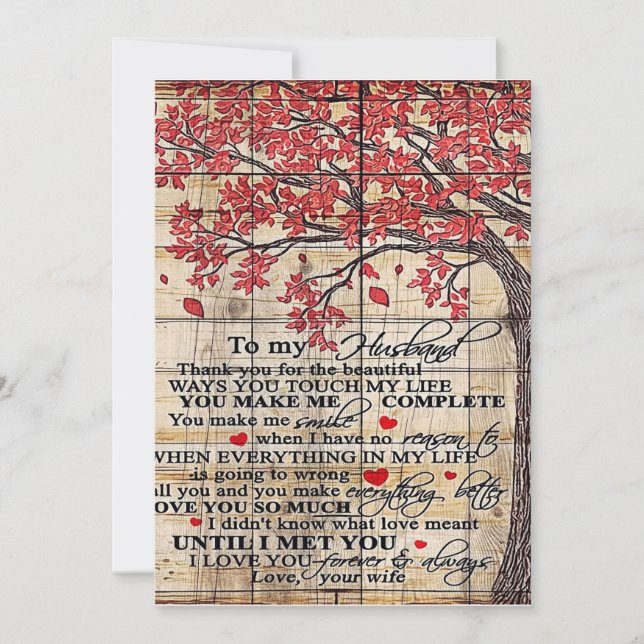 To my Husband
Thank you for the beautiful
WAYS YOU TOUCH MY LIFE
YOU MAKE ME COMPLETE
You make me smile
when I have no reason to
WHEN EVERYTHING IN MY LIFE
is going to wrong
all you and you make everything better
OVE YOU SO MUCH
I didn't know what love meant
UNTIL I MET YOU
I LOVE YOU forever & always
Love, your wife